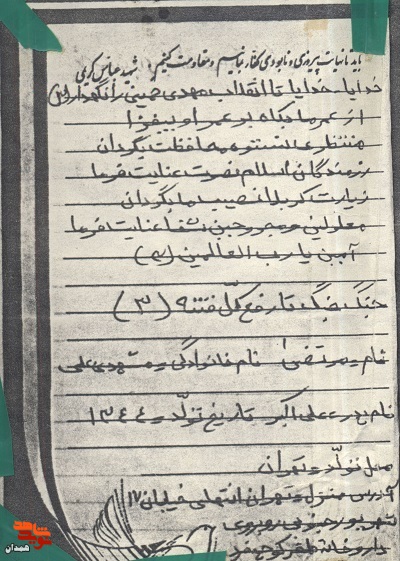 باید تا نهایت پیروزی و نابودی کفار بمانیم و مقاومت کنیم. شهید عباس کرمی
خدایا، خدایا تا انقلاب مهدی خمینی را نگهدار (۲)
از عمر ما بکاه بر عمر او بیفزا
منتظری نستوه محافظت بگردان
رزمندگان اسلام نصرت عنایت فرما
زیارت کربلا نصیب ما بگردان
معلولین و مجروحین شفا عنایت فرما
آمین یا رب العالمین
جنگ جنگ تا رفع کل فتنه (۳)
نام = مرتضی نام خانوادگی = مشهدی علی
نام پدر = علی اکبر تاریخ تولد = ۱۳۴۴
محل تولد = تهران
آدرس منزل = تهران انتهای خیابان ۱۷
شهریور جنوبی روبروی
داروخانه ظفر کوچه
همدان